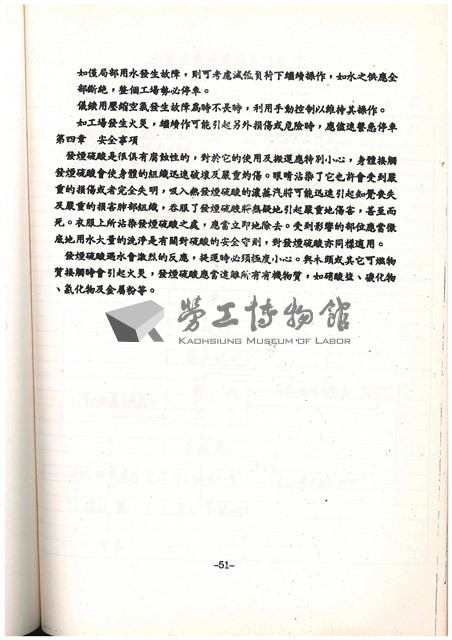 如僅局部用水發生故障，則可考慮減低負荷下繼續操作，如水之供應全
部斷絕，整個工場勢必停車。
儀錶用壓縮空氣發生故障為時不長時，利用手動控制以維持其操作。
如工場發生火災，繼續作可能引起另外損傷或危險時，應儘速緊急停車
第四章　安全事項
發煙硫酸是很俱有腐蝕性的，對於它的使用及搬運應特別小心，身體接觸
發煙硫酸會使身體的組織迅速破壞及嚴重灼傷。眼睛沾染了它也許會受到嚴
重的損傷或者完全失明，吸入熱發煙硫酸的濃蒸汽將可能迅速引起知覺喪失
及嚴重的損害肺部組織，吞服了發煙硫酸將無疑地引起嚴重地傷害，甚至而
死。衣服上所沾染發煙硫酸之處，應當立即地除去。受到影響的部位應當徹
底地用水大量的洗淨是有關對硫酸的安全守則，對發煙硫酸亦同樣適用。
發煙硫酸遇水會激烈的反應，提運時必須極度小心。與木頭或其它可燃物
質接觸時會引起火災，發煙硫酸應當遠離所有有機物質，如硝酸鹽、碘化物
、氯化物及金屬粉等。
勞工博物館
KAOHSIUNG MUSEUM OF LABOR
-51-